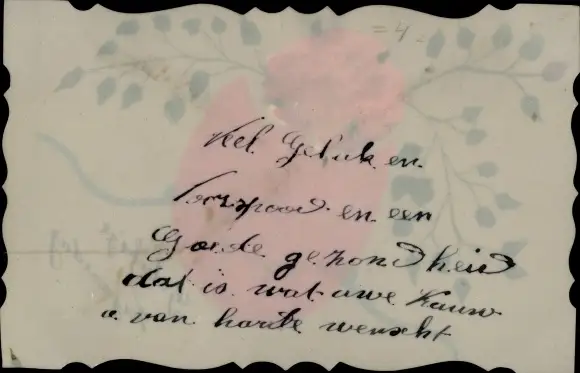 = 4 =
Veel Geluk en
Voorspoed en een
Goede gezondheid
dat is wat uwe
u van harte wenscht